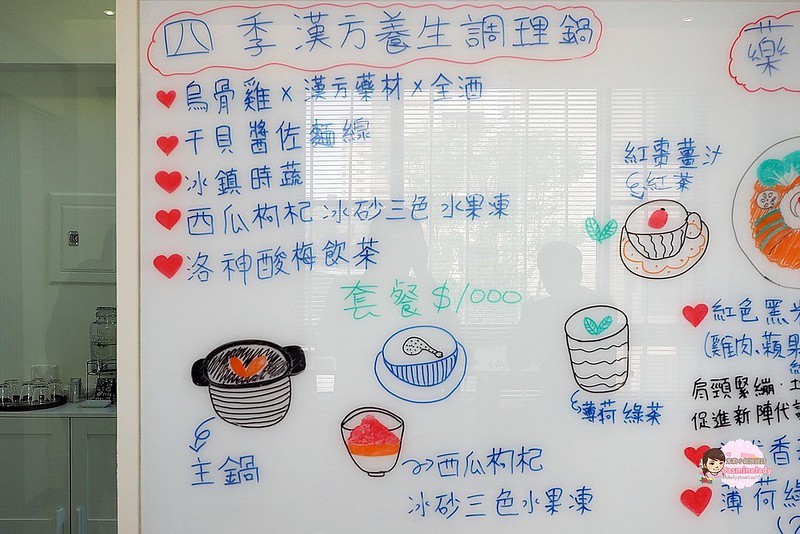 四季漢方養生調理鍋
烏骨雞×漢方藥材×全酒
干貝醬佐麵線
冰鎮時蔬
西瓜枸杞冰砂三色水果凍
洛神酸梅飲茶
套餐$1000
主鍋
西瓜枸杞
冰砂三色水果凍
紅棗薑汁
紅茶
薄荷綠茶
藥
紅色黑米
(雞肉、蘋果
肩頸緊繃、
促進新陣代
香
薄荷綠